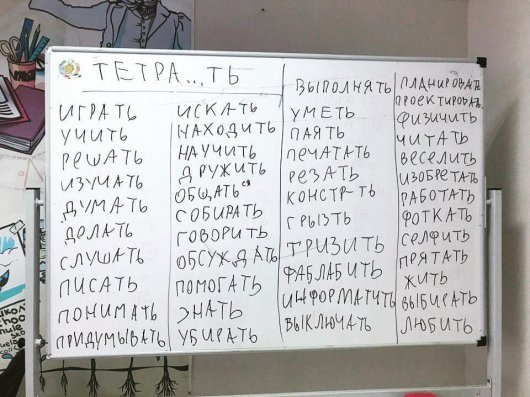 ТЕТРА...ТЬ
ИГРАТЬ
УЧИТЬ
РЕШАТЬ
ИЗУЧАТЬ
ДУМАТЬ
ДЕЛАТЬ
СЛУШАТЬ
ПИСАТЬ
ПОНИМАТЬ
ПРИДУМЫВАТЬ
ИСКАТЬ
НАХОДИТЬ
НАУЧИТЬ
ДРУЖИТЬ
ОБЩАТЬСЯ
СОБИРАТЬ
ГОВОРИТЬ
ОБСУЖДАТЬ
ПОМОГАТЬ
ЗНАТЬ
УБИРАТЬ
ВЫПОЛНЯТЬ
УМЕТЬ
ПАЯТЬ
ПЕЧАТАТЬ
РЕЗАТЬ
КОНСТР-ТЬ
ГРЫЗТЬ
ТРИЗИТЬ
ФАБЛАБИТЬ
ИНФОРМАТИТЬ
ВЫКЛЮЧАТЬ
ПЛАНИРОВАТЬ
ПРОЕКТИРОВАТЬ
ФИЗИЧИТЬ
ЧИТАТЬ
ВЕСЕЛИТЬ
ИЗОБРЕТАТЬ
РАБОТАТЬ
ФОТКАТЬ
СЕЛФИТЬ
ПРЯТАТЬ
ЖИТЬ
ВЫБИРАТЬ
ЛЮБИТЬ